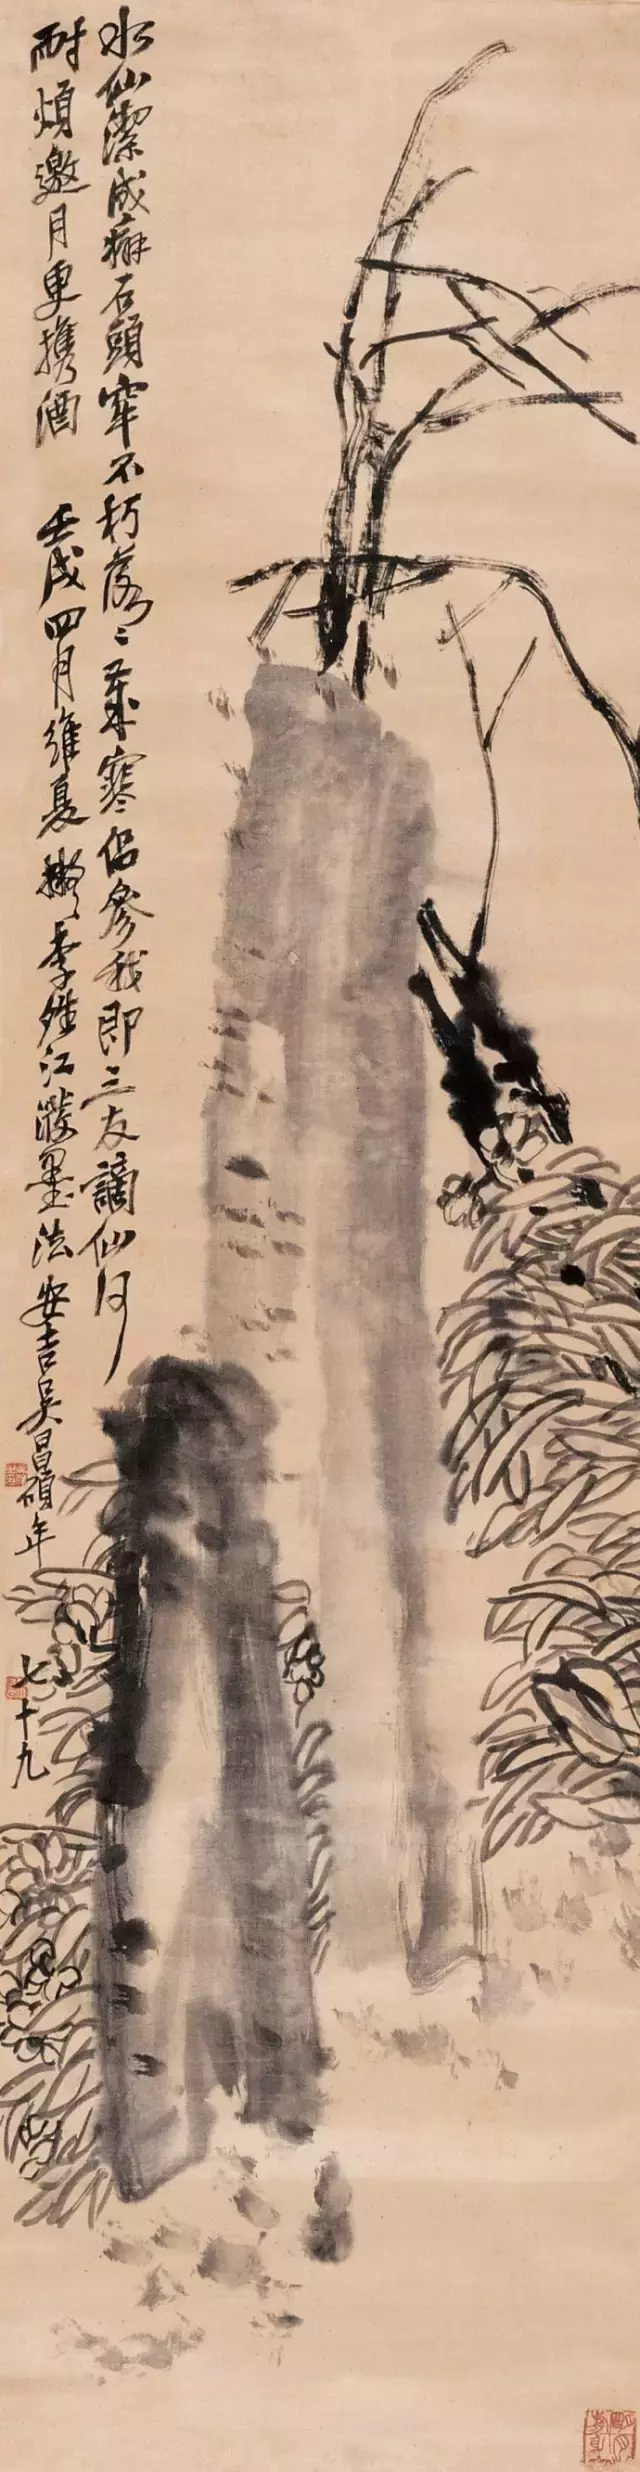 水仙潔成癖石頭牢不朽落落歲寒侶參我即三友謫仙何
耐煩邀月更携酒 壬戌四月維夏擬李
江潑墨法安吉吳昌碩年
七十九